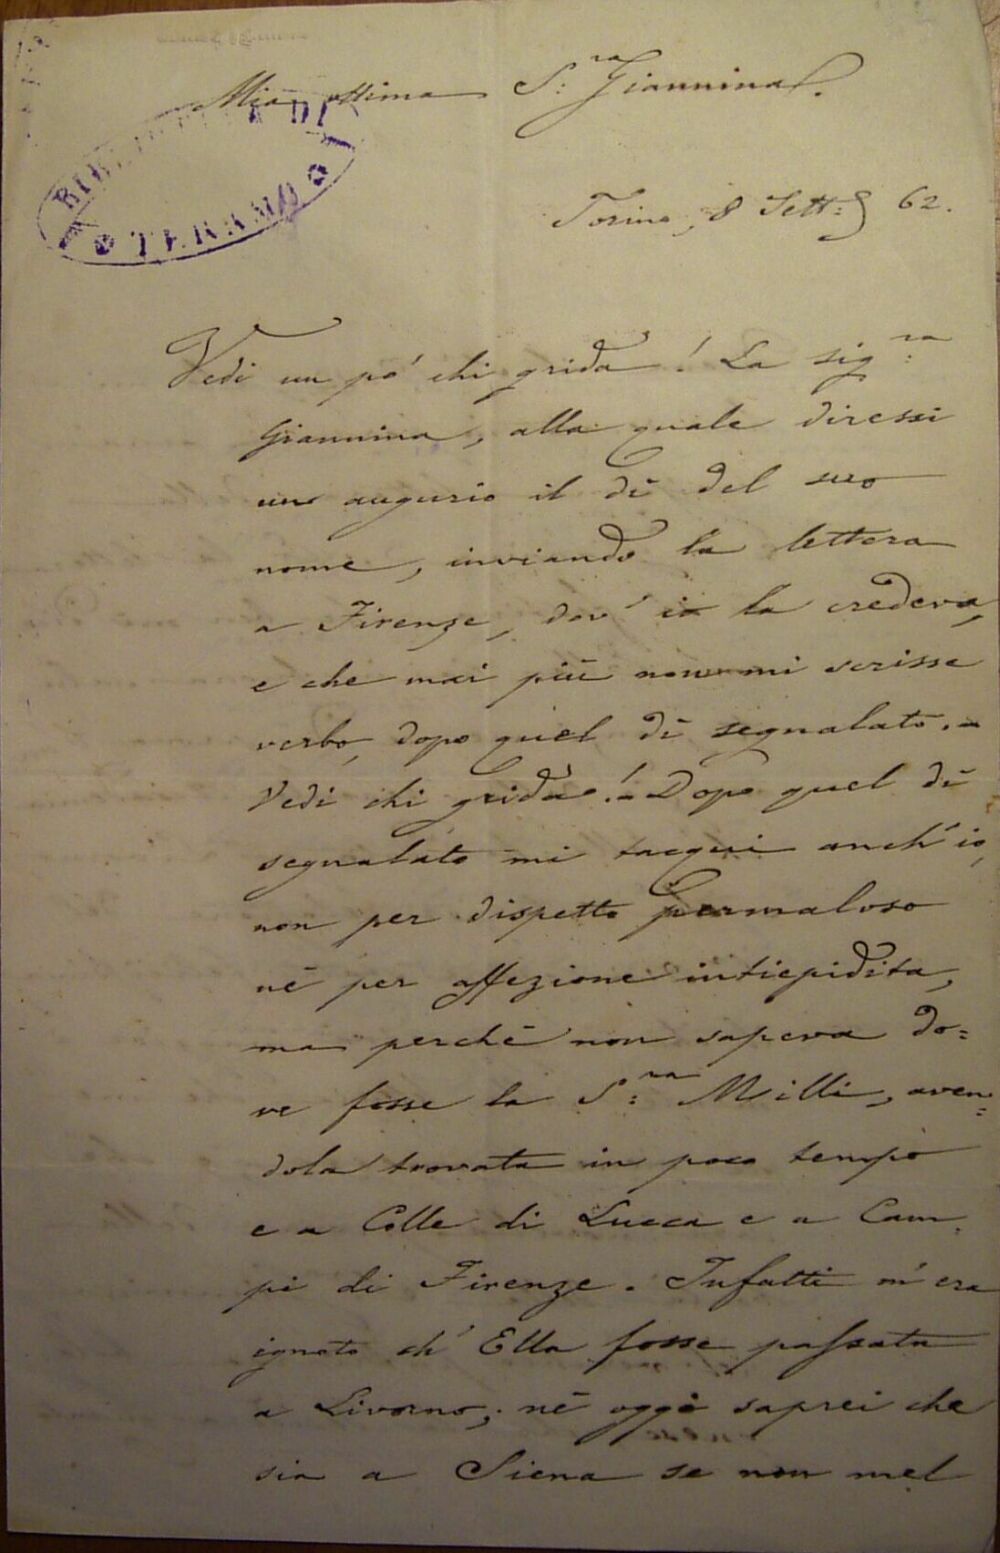 Mia ottima S:ra Giannina.
BIBLIOTECA DI
TERAMO
Torino, 8 Sett:e 62.
Vedi un pò chi grida! La sig:ra
Giannina, alla quale diressi
un augurio il dì del suo
nome, inviando la lettera
a Firenze, dov' io la credeva,
e che mai più non mi scrisse
verbo, dopo quel dì segnalato. –
Vedi chi grida! – Dopo quel dì
segnalato mi tacqui anch' io,
non per dispetto permaloso
nè per affezione intiepidita,
ma perchè non sapeva do=
ve fosse la S:ra Milli, aven=
dola trovata in poco tempo
e a Colle di Lucca e a Cam
pi di Firenze. Infatti m' era
ignoto ch' Ella fosse passata
a Livorno; nè oggi saprei che
sia a Siena se non mel